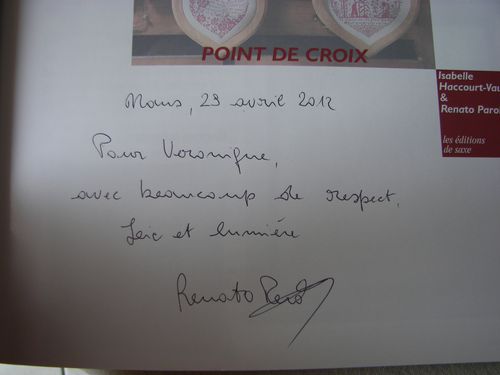 POINT DE CROIX
Isabelle
Haccourt-Vau
&
Renato Paro
les éditions
de saxe
Mons, 29 avril 2012
Pour Veronique,
avec beaucoup de respect,
et lumière
Renato